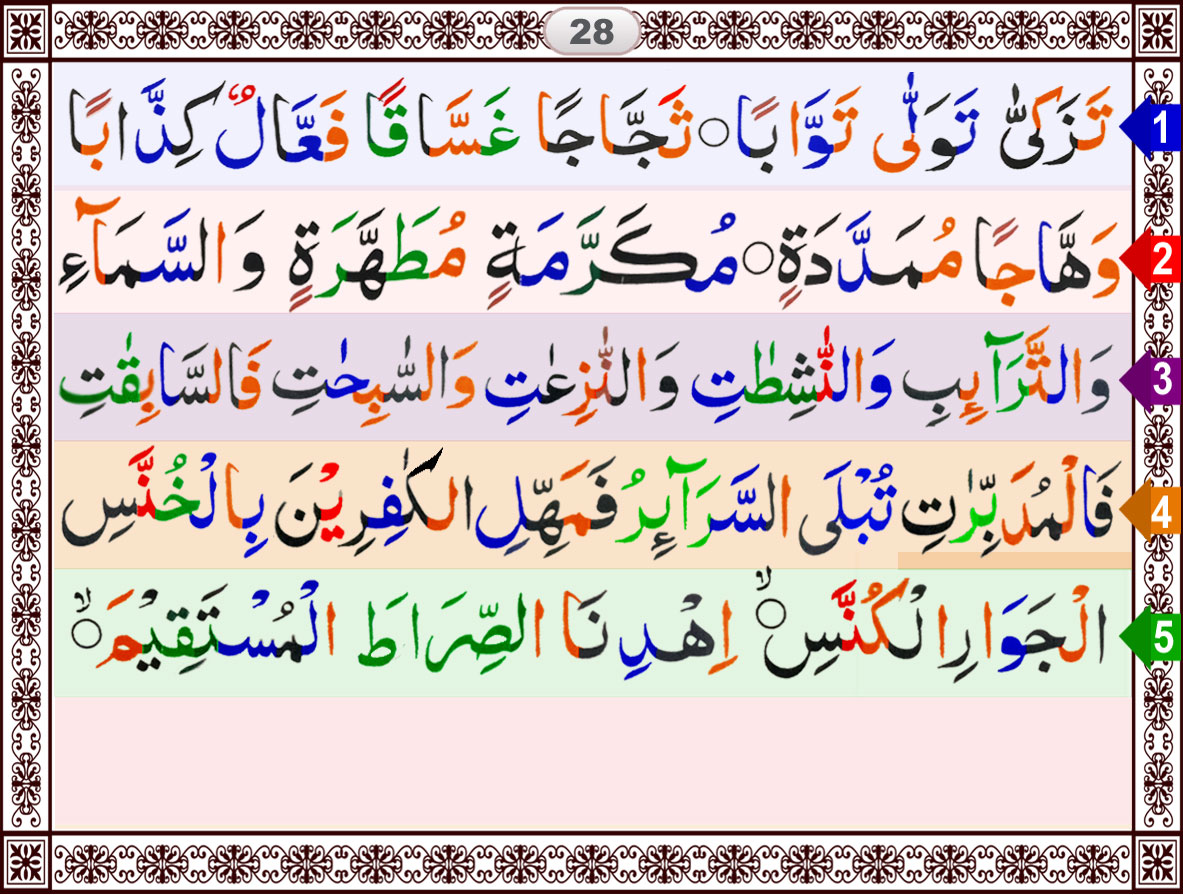 28
1 تَزَكّٰى تَوَلّٰى تَوَّابًا ○ ثَجَّاجًا غَسَّاقًا فَعَّالٌ كِذَّابًا
2 وَهَّاجًا مُمَدَّدَةٍ ○ مُكَرَّمَةٍ مُطَهَّرَةٍ وَالسَّمَآءِ
3 وَالتَّرَآىِٕبِ وَالنّٰشِطٰتِ وَالنّٰزِعٰتِ وَالسّٰبِحٰتِ فَالسَّابِقٰتِ
4 فَالْمُدَبِّرٰتِ تُبْلَى السَّرَآىِٕرُ فَمَهِّلِ الكٰفِرِيْنَ بِالْخُنَّسِ
5 الْجَوَارِ الْكُنَّسِ ○ۙ اِهْدِنَا الصِّرَاطَ الْمُسْتَقِيْمَ ○ۙ